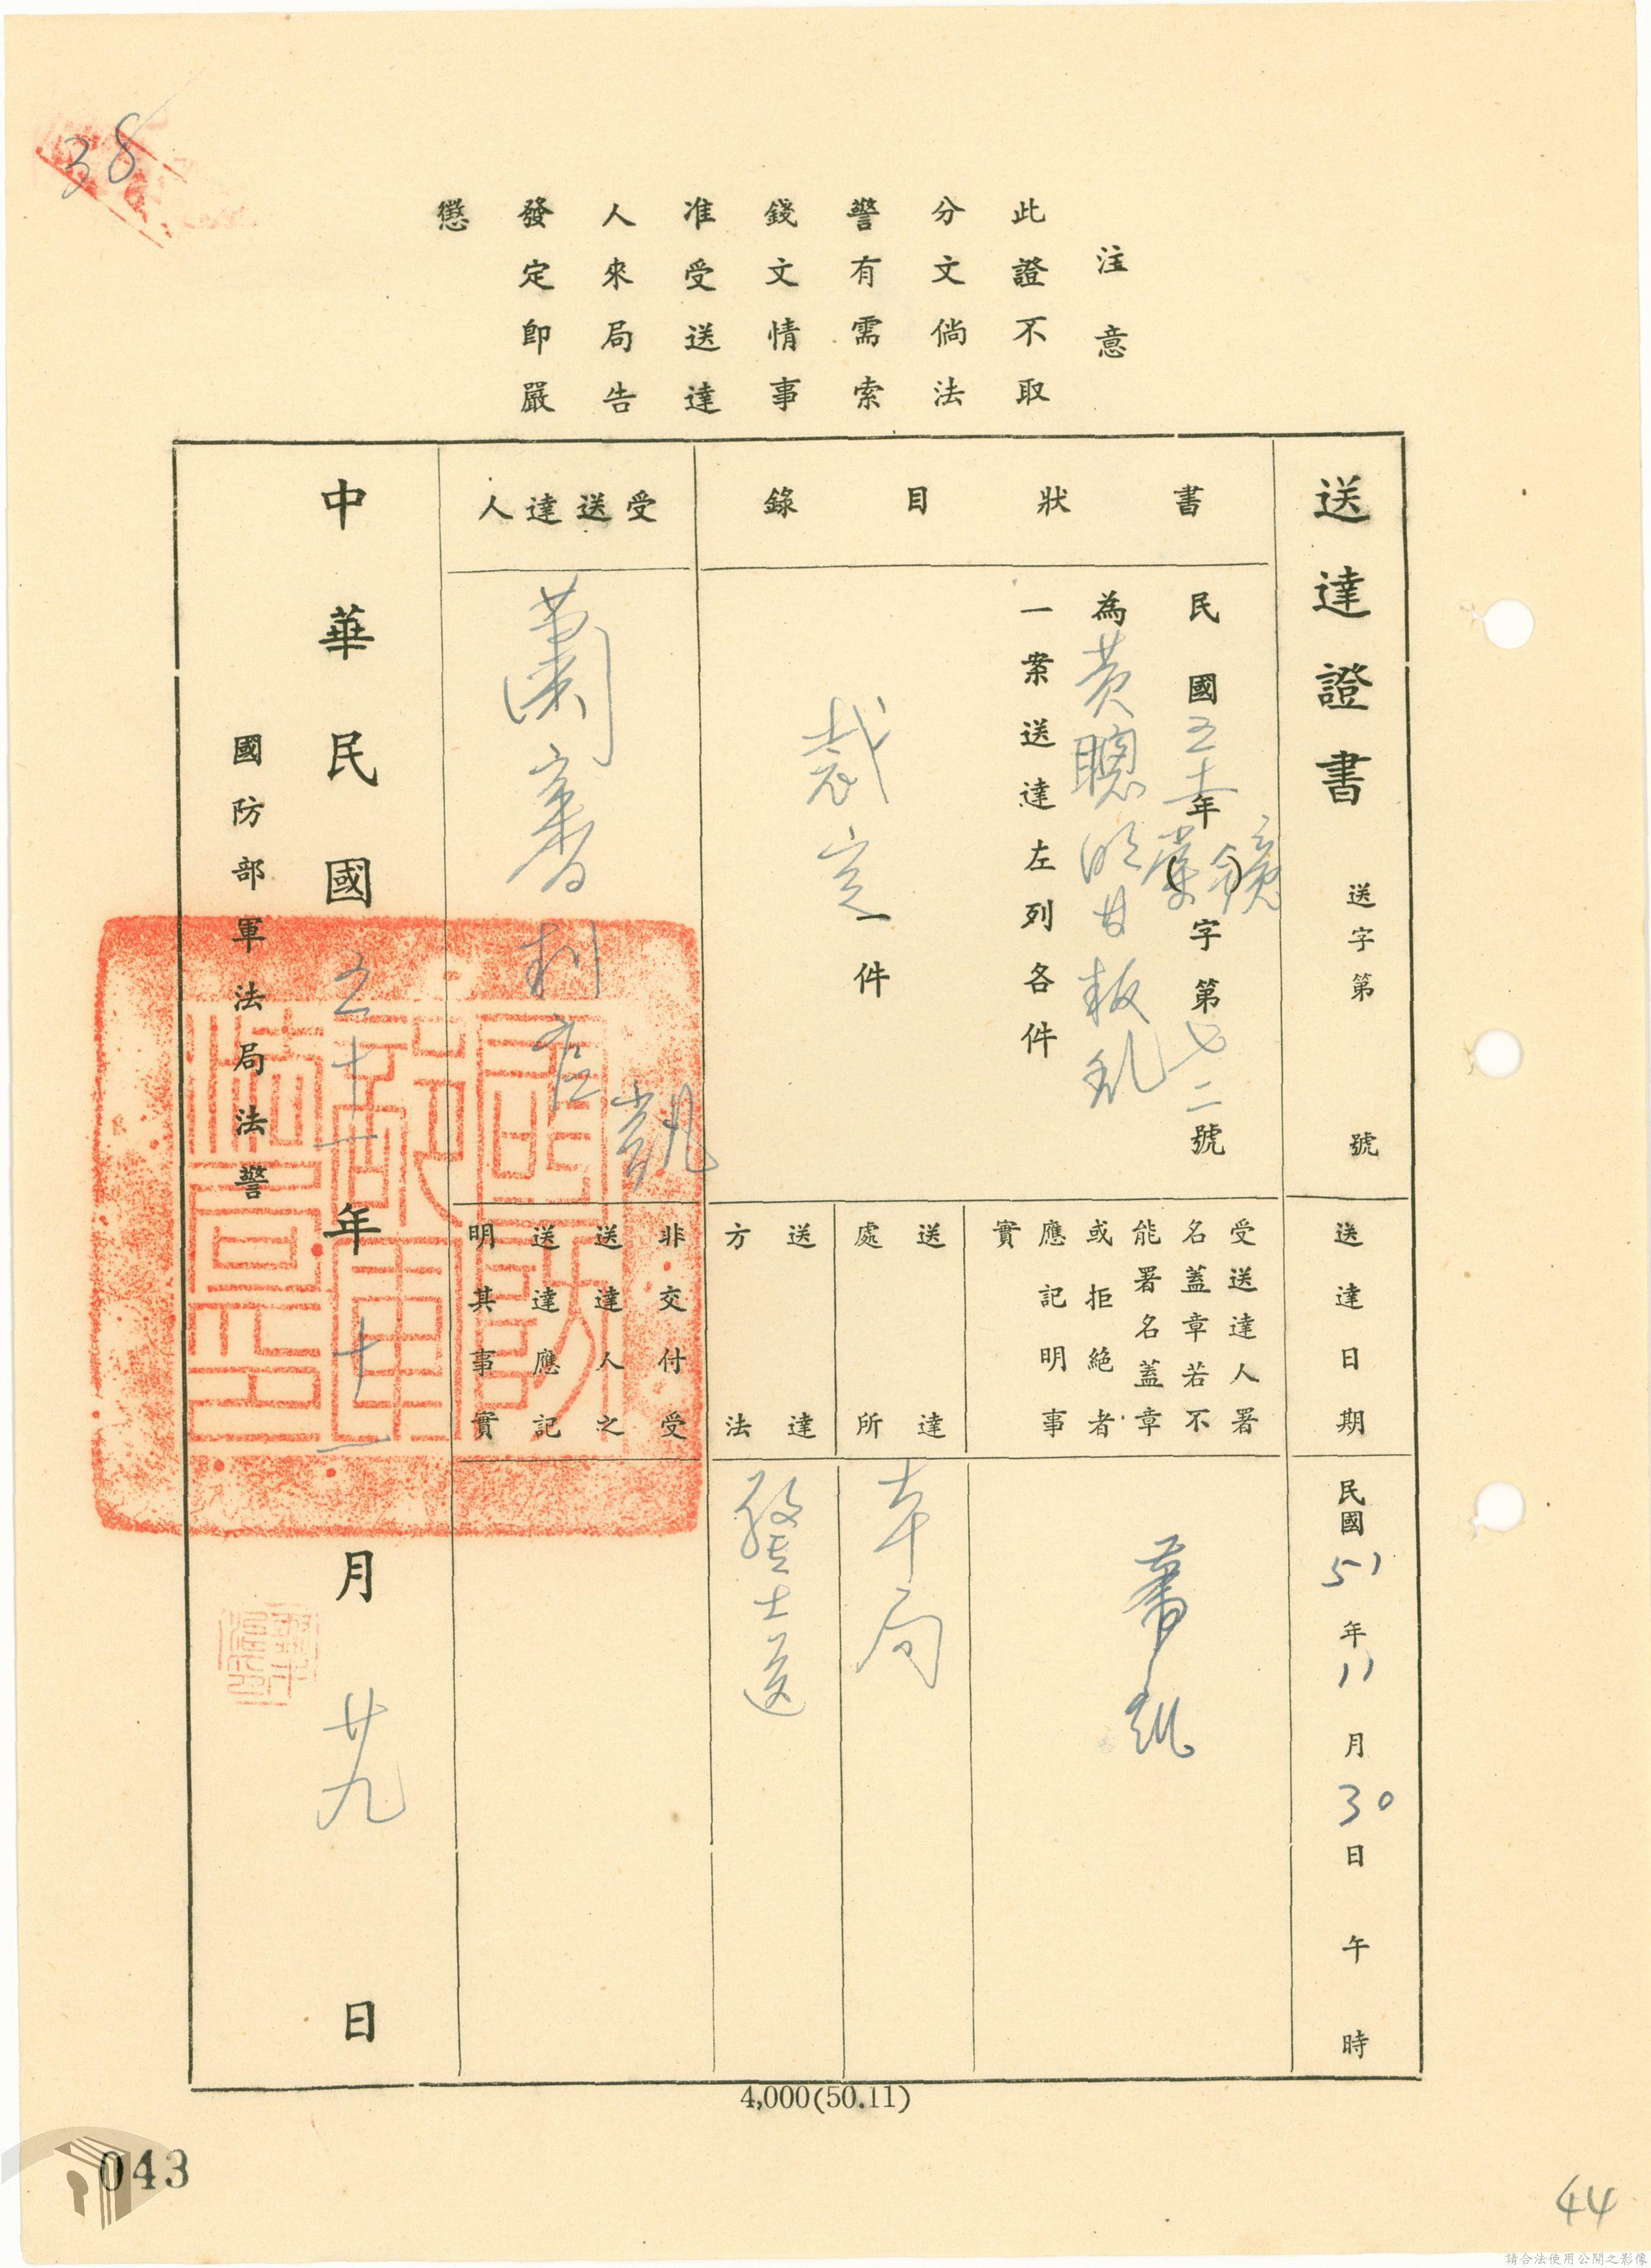 38
注意
此證不取
分文倘法
警有需索
錢文情事
准受送達
人來局告
發定即嚴
懲
送達證書 送字第 號
書狀目錄
民國五十一年()字第七二號
為黃聰明等叛亂
一案送達左列各件
裁定一件
受送達人
蕭
送達日期
民國51年11月30日午時
受送達人署
名蓋章若不
能署名蓋章
或拒絕者
應記明事
實
蕭
送達
處所
本局
送達
方法
士送
非交付受
送達人之
送達應記
明其事實
中華民國五十一年十一月廿九日
國防部軍法局法警
4,000(50.11)
043
44
請合法使用公開之影像